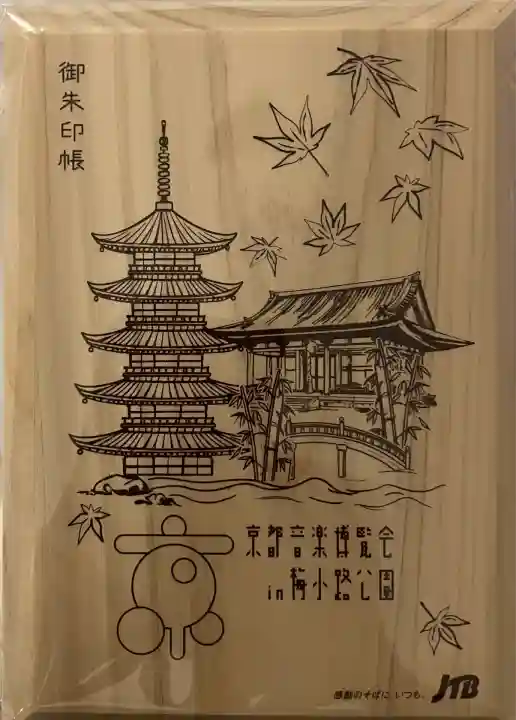 御朱印帳
京都音楽博覧会
in梅小路公園
感動のそばに いつも。
JTB